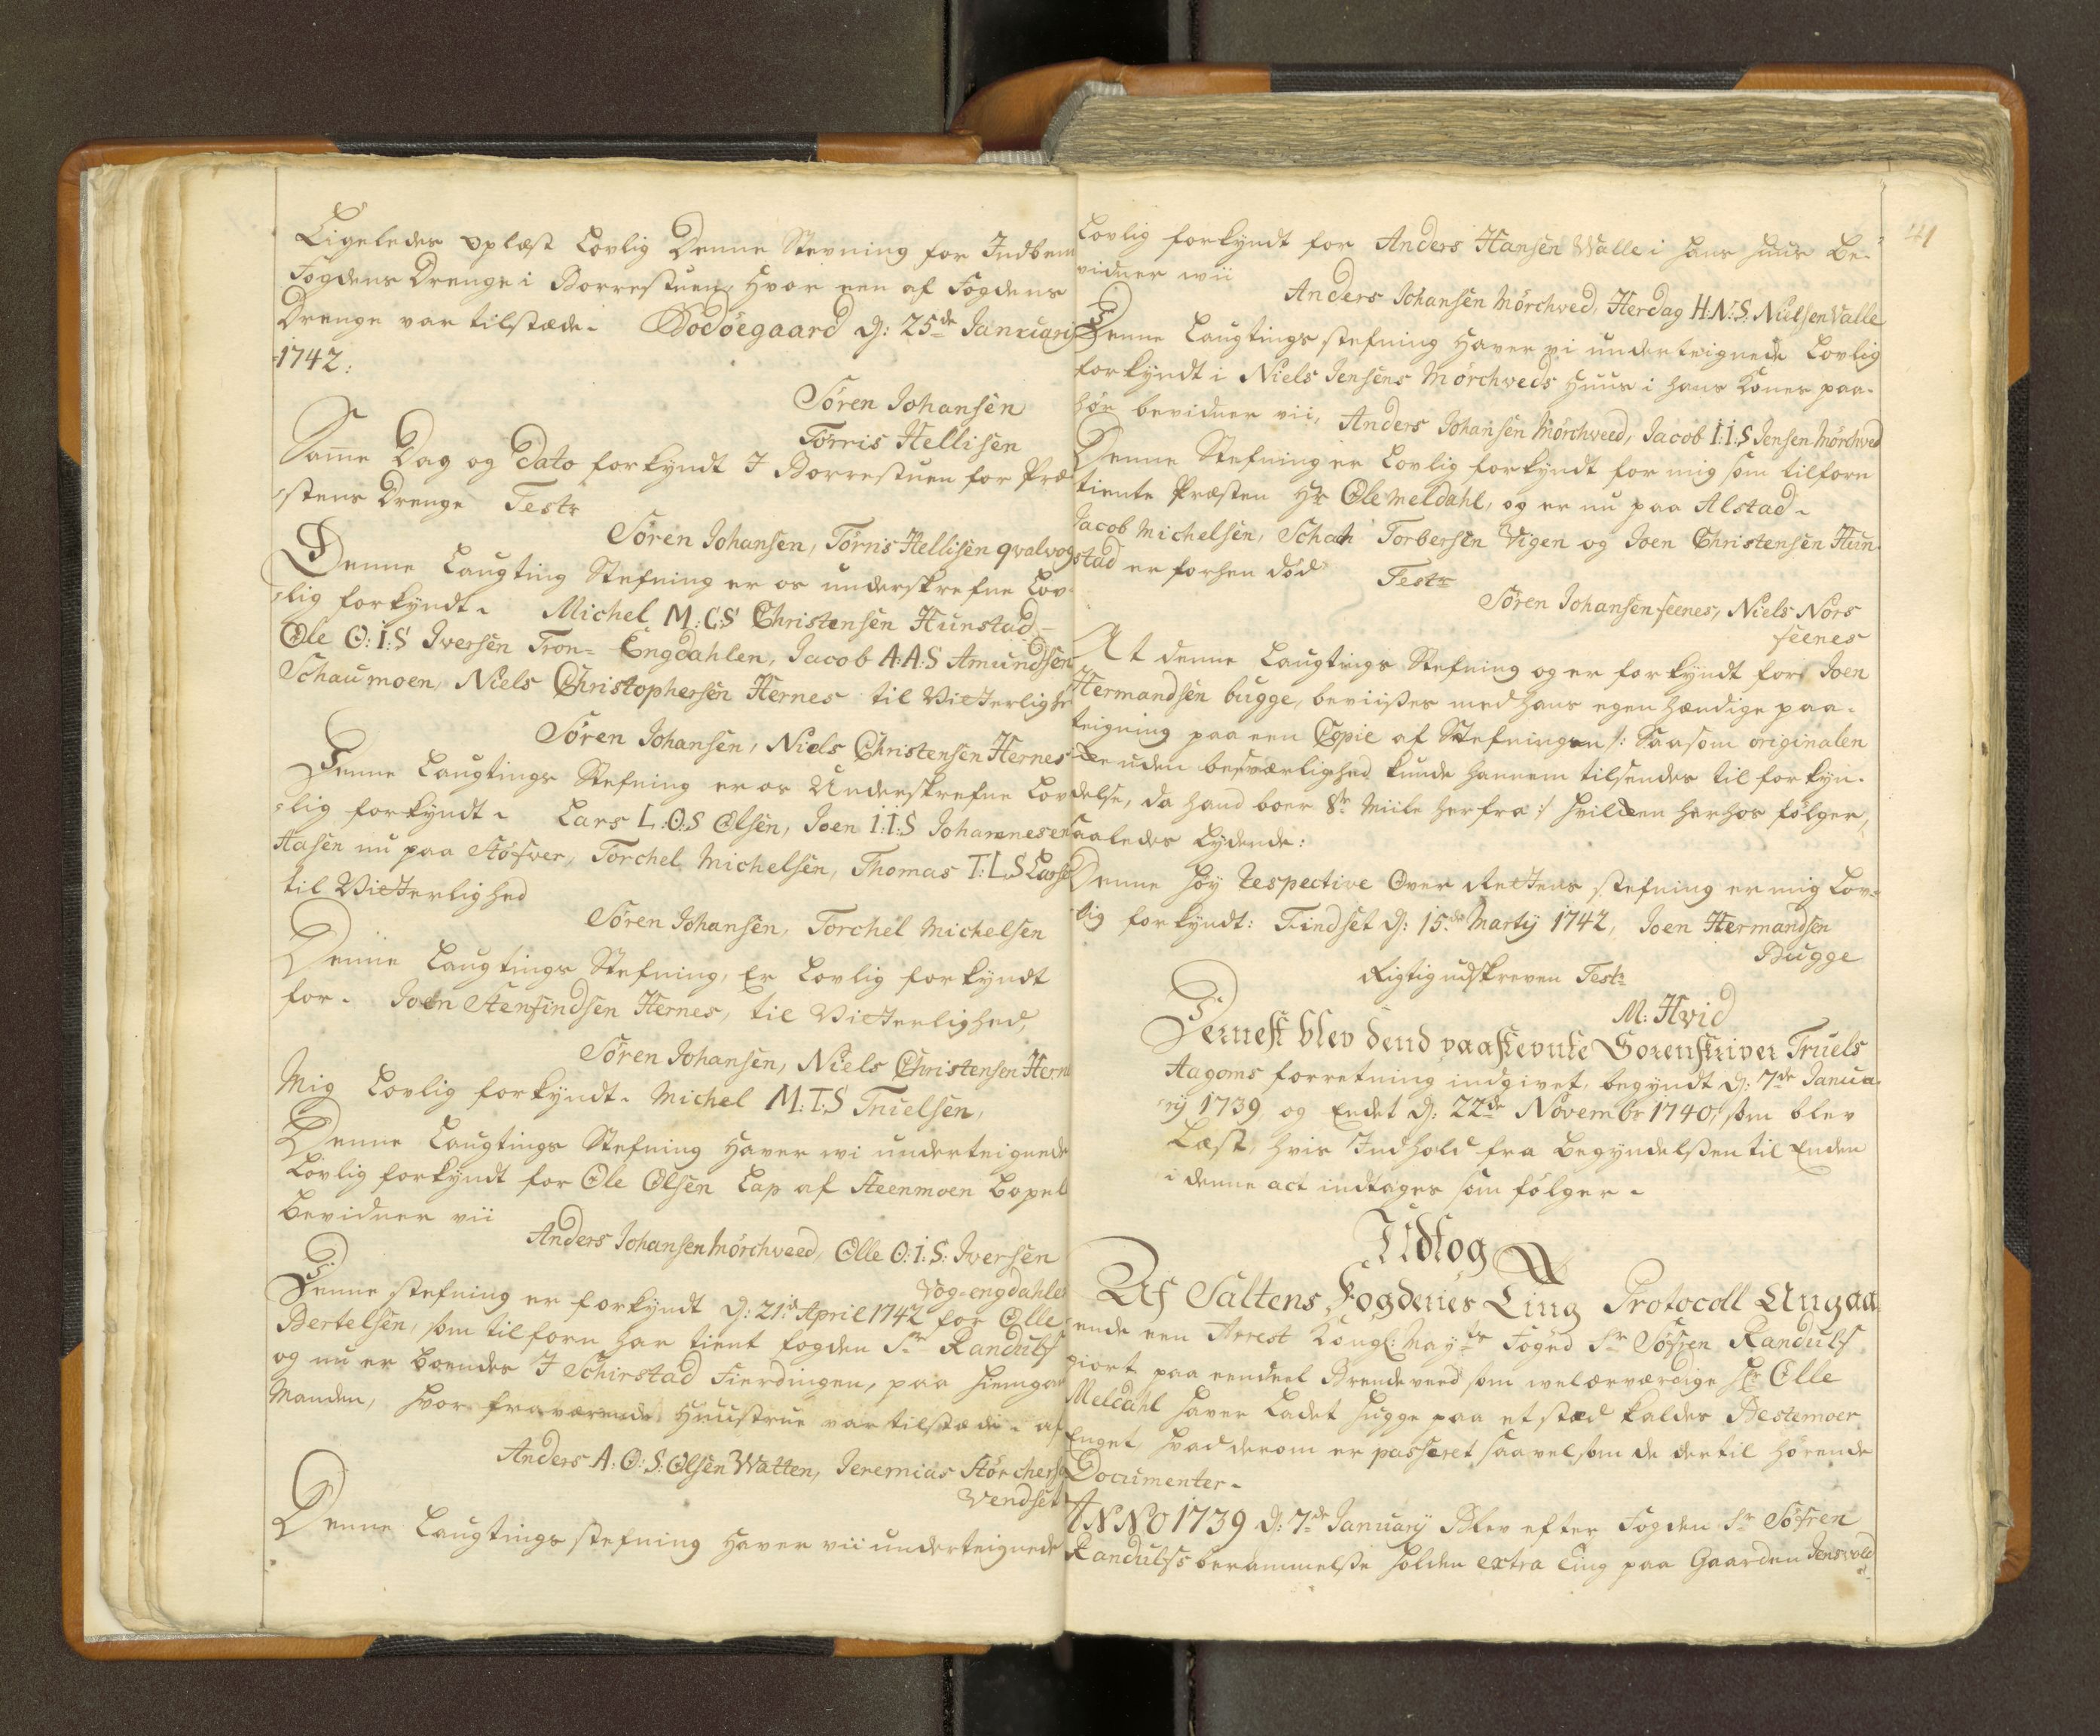 Ligeledes oplæst Lovlig Denne Stevning for Indbem
Fogdens Drenge i Borrestuen, hvor een af Fogdens
Drenge var tilstæde. Bodöegaard d: 25de Januarij
1742:
Sören Johansen
Törris Hellisen
Samme Dag og Dato forkyndt I Borrestuen for Præ
stens Drenge Testr
Sören Johansen, Törris Hellisen qvalvog
Denne Laugting Stefning er os underskrefne Lov
lig forkyndt. Michel M:C:S Christensen Hunstad
Ole O:I:S Iversen Tron= Engdahlen, Jacob A:A:S Amundsen
Schaumoen, Niels Christophersen Hernes til Vitterlighed
Sören Johansen, Niels Christensen Hernes
Denne Laugtings Stefning er os Underskrefne Lov
lig forkyndt. Lars L:O:S Olsen, Joen I:I:S Johannesen
Aasen nu paa Stöfver, Torchel Michelsen, Thomas T:L:S Larse
til Vitterlighed
Sören Johansen, Torchel Michelsen
Denne Laugtings Stefning, Er Lovlig forkyndt
for. Joen Stenfindsen Hernes, til Vitterlighed,
Sören Johansen, Niels Christensen Hern
Mig Lovlig forkyndt. Michel M:T:S Truelsen,
Denne Laugtings Stefning haver wi underteignede
Lovlig forkyndt for Ole Olsen Lap af Steenmoen Bopel
bevidner vii
Anders Johansen Mörchveed, Olle O:I:S: Iversen
Vog=engdahlen
Denne stefning er forkyndt d: 21de April 1742 for Olle
Bertelsen, som tilforn har tient fogden Sr Randulf
og nu er boendes I Schirstad Fierdingen, paa hiemgaar
Manden, hvor fraværende Huustrue var tilstæde. af
Anders A:O:S: Olsen Watten, Jeremias Störchersen
Vendset
Denne Laugtings stefning haver vii underteignede
41
Lovlig forkyndt for Anders Hansen Walle i hans huus be-
vidner wii
Anders Johansen Mörchved, Herdag H:N:S: Nielsen Valle
Denne Laugtings stefning haver vi underteignede Lovlig
forkyndt i Niels Jensens Mörchveds Huus i hans Kones paa-
hör bevidner vii, Anders Johansen Mörchveed, Jacob I:I:S Jensen Mörchved
Denne Stefning er Lovlig forkyndt for mig som tilforn
tiente Præsten Hr Ole Meldahl, og er nu paa Alstad.
Jacob Michelsen, Schach Torbersen Vigen og Joen Christensen Hun
stad er forhen död Testr
Sören Johansen seenes, Niels Nörs
seenes
At denne Laugtings Stefning og er forkyndt for Joen
Hermandsen bugge, beviises med hans egen hændige paa-
teigning paa een Copie af Stefningen /: Saasom originalen
ke uden besværlighed kunde hannem tilsendes til forkyn-
delse, da hand boer 8te Miile herfra :/ hvilken herhos fölger,
saaledes Lydende:
Denne höy respective Over Rettens stefning er mig Lov-
lig forkyndt: Findset d: 15de Martij 1742, Joen Hermandsen
Bugge
Rigtig udskreven Testr
M: Hvid
Dernest blev dend paastevnte Sorenskriver Truels
Aagoms forretning indgivet, begyndt d: 7de Janua
rij 1739 og Endet d: 22de Novembr 1740, som blev
Læst, hvis Indhold fra begyndelsen til Enden
i denne act indtages som fölger.
Udtog
Af Saltens Fogderies Ting Protocoll Angaa
ende een Arrest Kongl: Mayts Foged Sr Söfren Randulf
giort paa eendeel Brendeveed som welærværdige Hr Olle
Meldahl haver Ladet hugge paa et stæd kaldes Hestemoer
Enget, hvad derom er passeret saavelsom de dertil hörende
Documenter.
ANNO 1739 d: 7de Januarij Blev efter Fogden Sr Söfren
Randulfs berammelse holden extra Ting paa Gaarden Jensvold